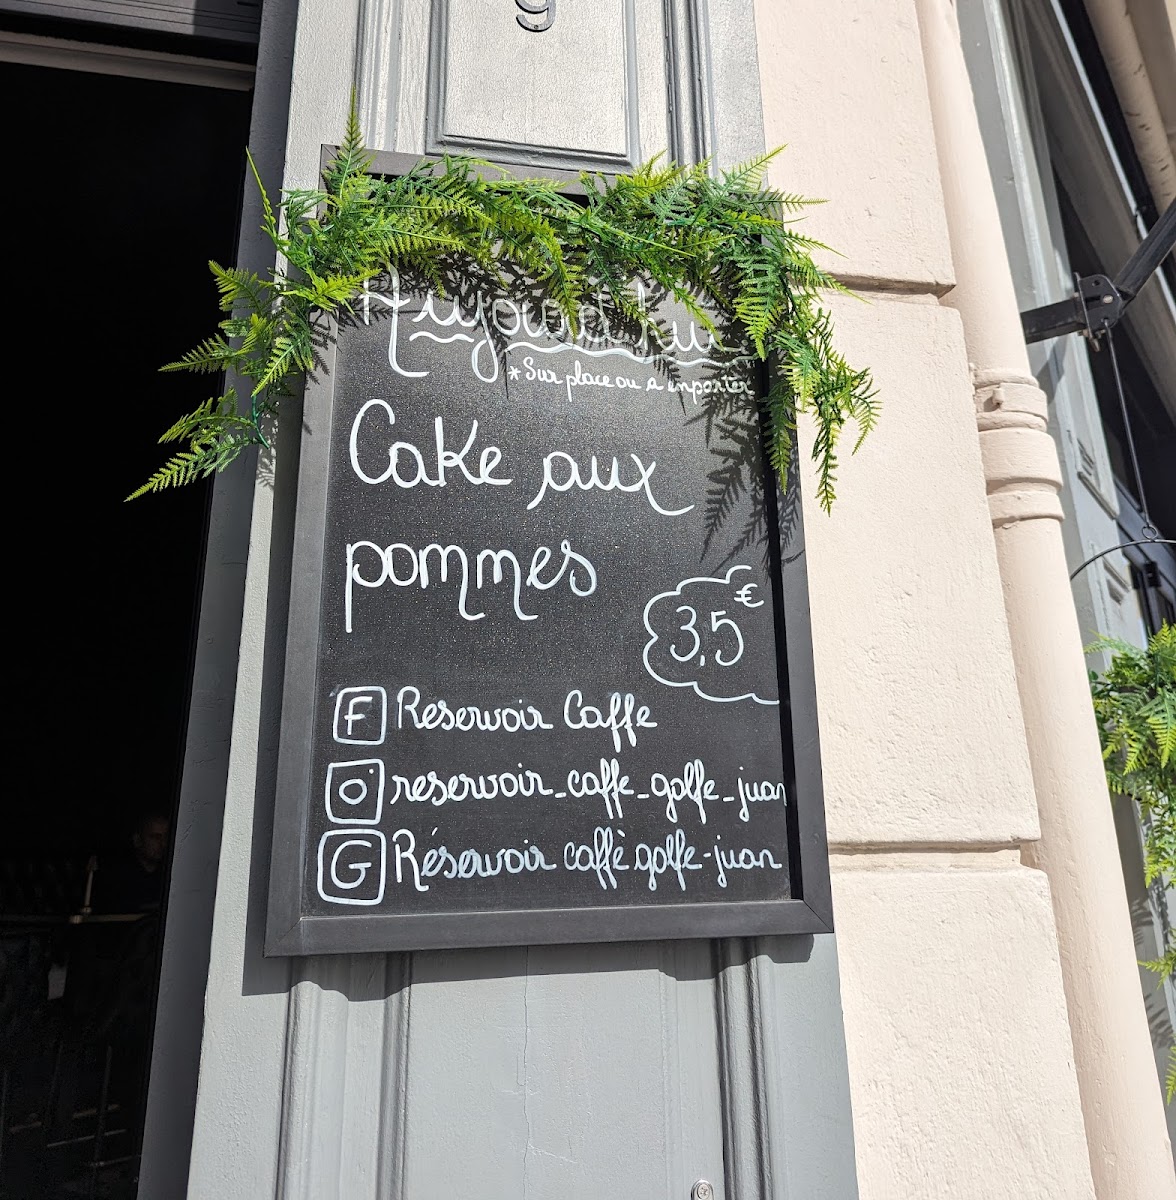 9
Aujourd'hui
*Sur place ou a emporter
Cake aux
pommes
3,5€
F Reservoir Caffe
reservoir_caffe_golfe_juan
G Réservoir caffè golfe-juan